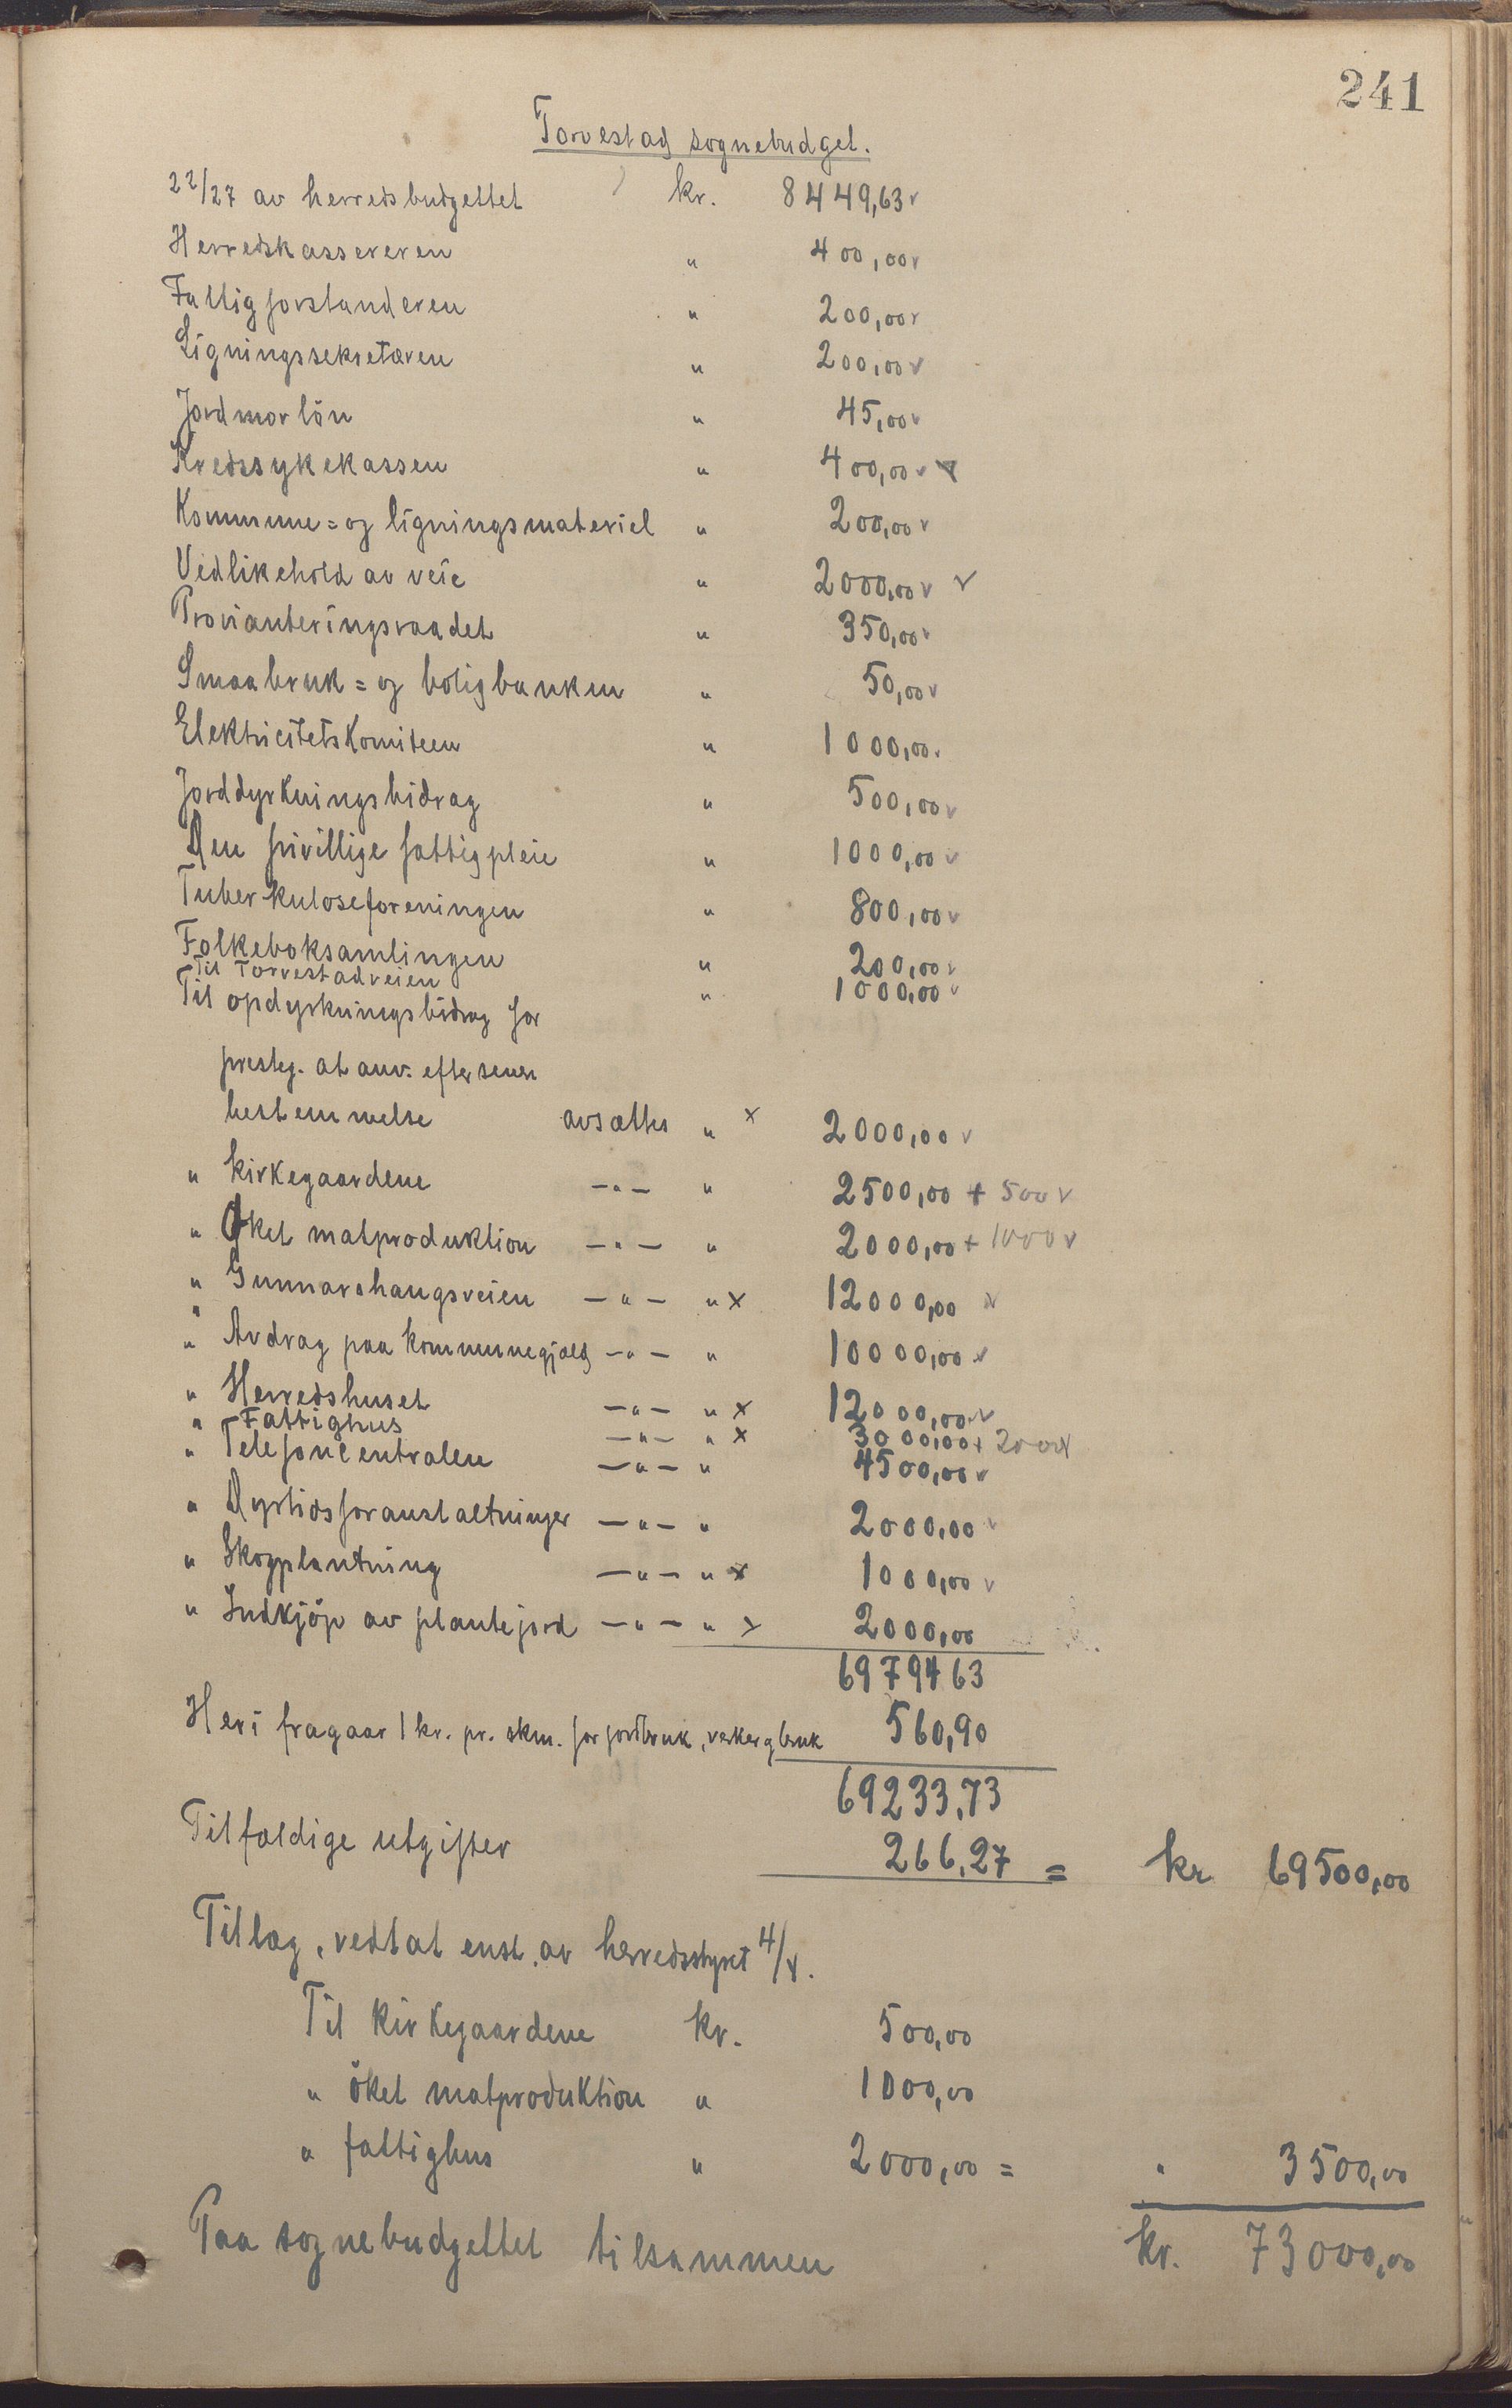 241
Torvestad sognebudget.
22/27 av herredsbudgettet kr. 8449,63 v
Herredskassereren " 400,00 v
Fattigforstanderen " 200,00 v
Ligningssekretæren " 200,00 v
Jordmorlön " 45,00 v
Kredssykekassen " 400,00 v v
Kommune= og ligningsmateriel " 200,00 v
Vedlikehold av veie " 2000,00 v v
Provianteringsraadet " 350,00 v
Smaabruk= og boligbanken " 50,00 v
Elektricitetskomiteen " 1000,00 v
Jorddyrkningsbidrag " 500,00 v
Den frivillige fattigpleie " 1000,00 v
Tuberkuloseforeningen " 800,00 v
Folkeboksamlingen " 200,00 v
Til Torvestadveien " 1000,00 v
Til opdyrkningsbidrag for
presteg. at anv. efter senere
bestemmelse avsættes " x 2000,00 v
" kirkegaardene —"— " 2500,00 + 500 v
" Øket matproduktion —"— " 2000,00 + 1000 v
" Gunnarshaugsveien —"— " x 12000,00 v
" Avdrag paa kommunegjæld —"— " 10000,00 v
" Herredshuset —"— " x 12000,00 v
" Fattighus —"— " x 3000,00 + 2000 v
" Telefoncentralen —"— " 4500,00 v
" Dyrtidsforanstaltninger —"— " 2000,00 v
" Skogplantning —"— " x 1000,00 v
" Indkjöp av plantejord —"— " x 2000,00
69794 63
Heri fragaar 1 kr. pr. skm. for jordbruk, verker og bruk 560,90
69233,73
Tilfældige utgifter 266,27 = kr 69500,00
Tillæg, vedtat enst. av herredsstyret 4/4.
Til kirkegaardene kr. 500,00
" öket matproduktion " 1000,00
" fattighus " 2000,00 = " 3500,00
Paa sognebudgettet tilsammen kr. 73000,00